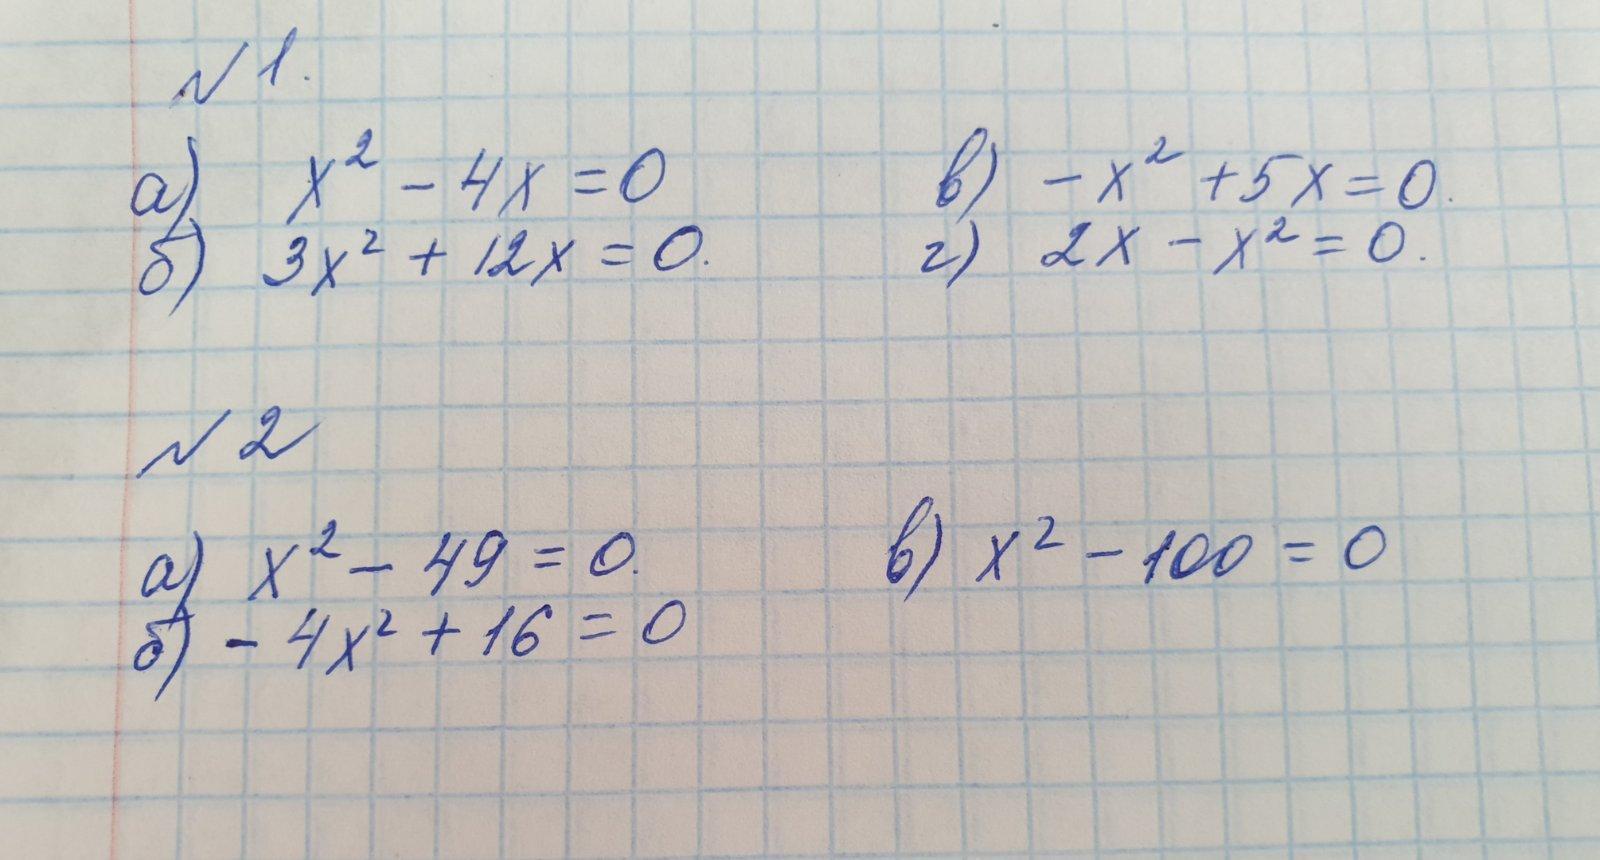 №1.
а) x² - 4x = 0
б) 3x² + 12x = 0.
в) -x² + 5x = 0.
г) 2x - x² = 0.
№2
а) x² - 49 = 0.
б) - 4x² + 16 = 0
в) x² - 100 = 0